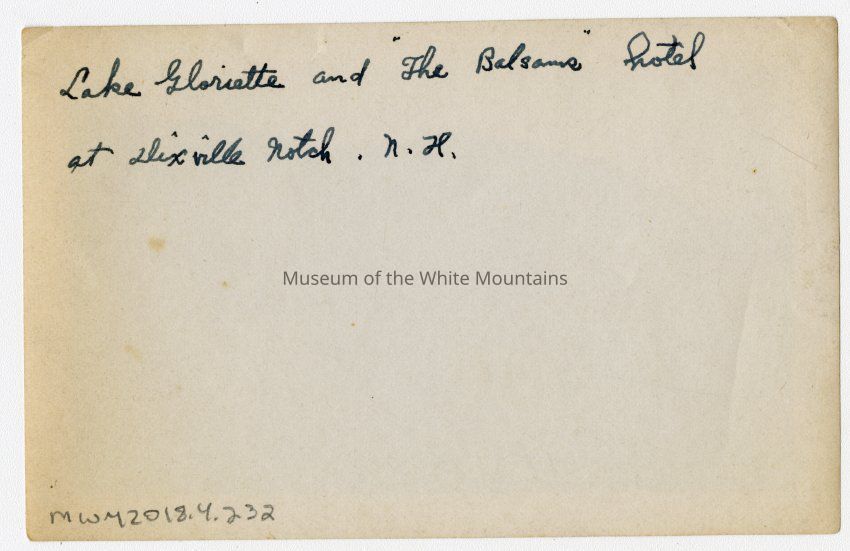 Lake Gloriette and "The Balsams" hotel
at Dixville Notch. N.H.
Museum of the White Mountains
MWM2018.4.232